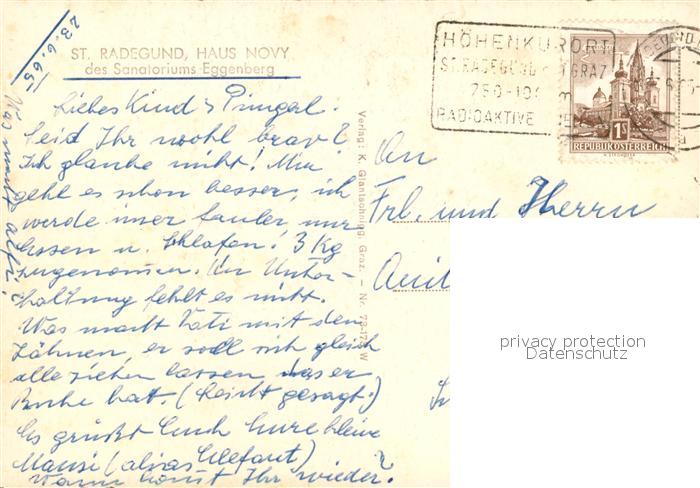 23.6.65
ST. RADEGUND, HAUS NOVY
des Sanatoriums Eggenberg
Liebes Kind &
Seid Ihr wohl brav?
Ich glaube nicht! Mir
geht es schon besser, ich
werde imer fauler nur
Essen u. Schlafen! 3 Kg
zugenomen. An Unter-
haltung fehlt es nicht.
Was macht Vati mit den
Zähnen, er soll sich gleich
alle ziehen lassen das er
Ruhe hat. (Leicht gesagt.)
Es grüßt Euch Eure kleine
Mausi (alias Elefant)
Wann komt Ihr wieder?
Was macht
Verlag: K. Glantschnigg, Graz. – Nr.
HÖHENKURORT
ST. RADEGUND GRAZ
750-
RADIOAKTIVE
1S
REPUBLIK ÖSTERREICH
An
Frl. und Herrn
privacy protection
Datenschutz